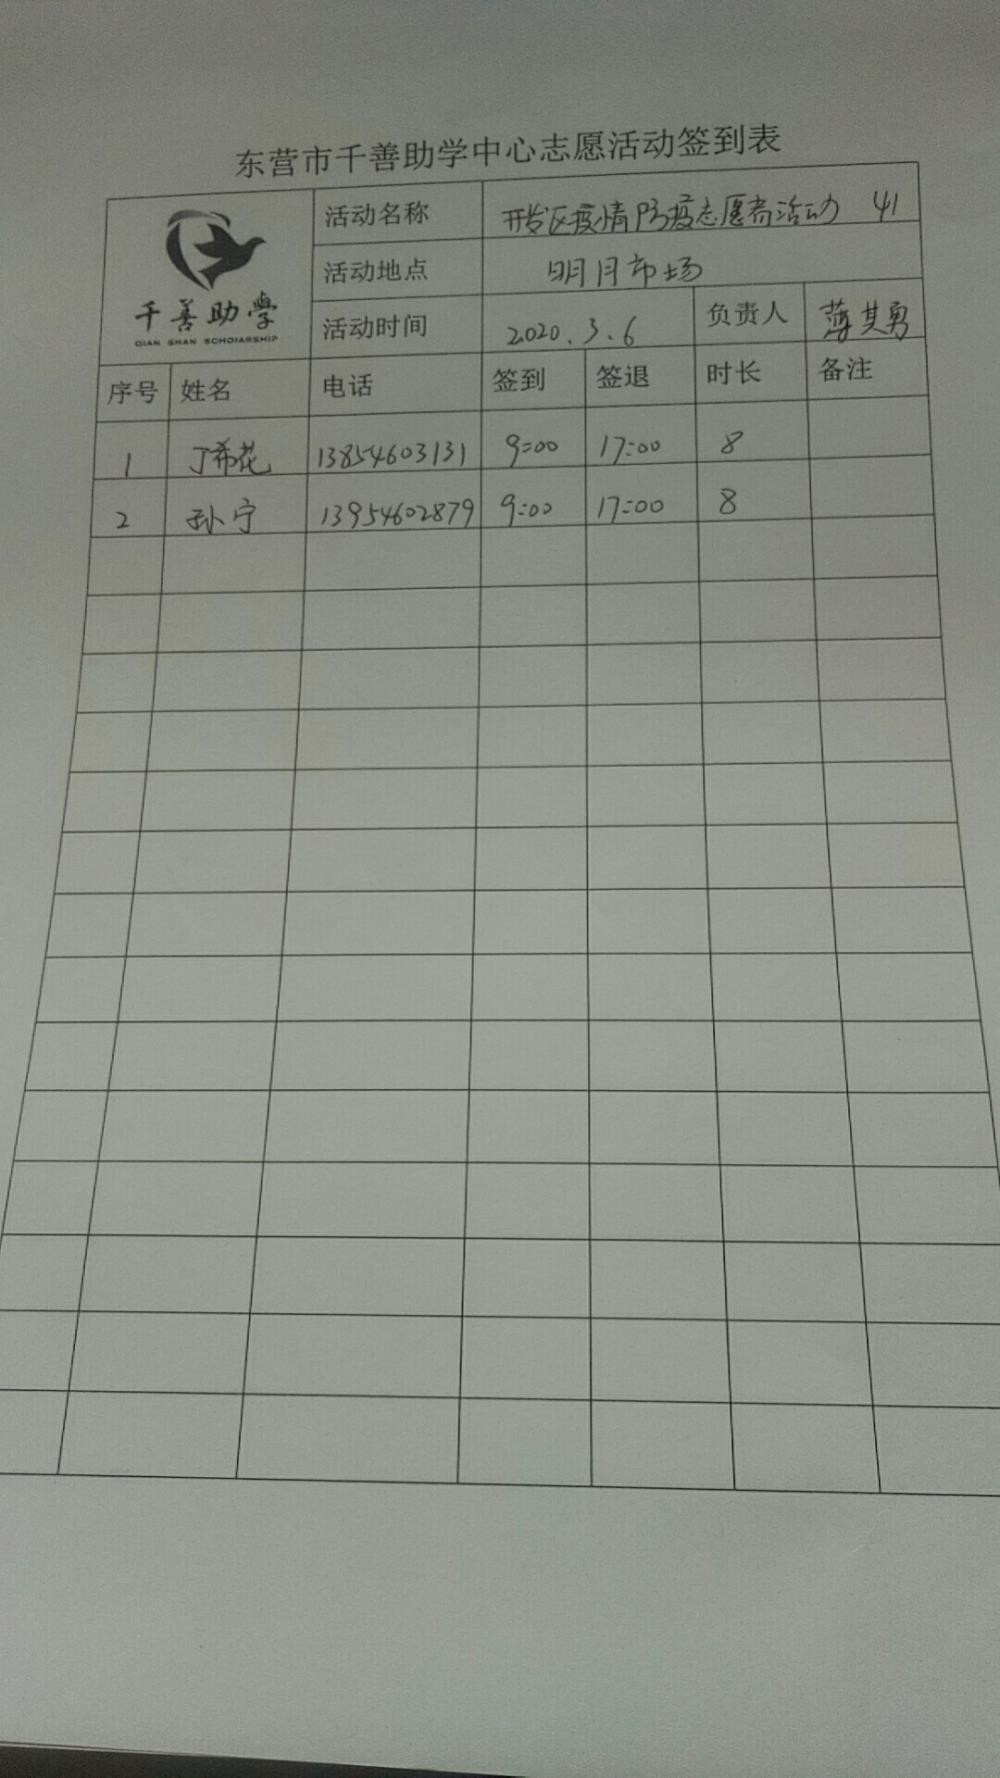 东营市千善助学中心志愿活动签到表
千善助学
QIAN SHAN SCHOIARSHIP
活动名称 开发区疫情防疫志愿者活动 41
活动地点 明月市场
活动时间 2020.3.6 负责人 薄其勇
序号 姓名 电话 签到 签退 时长 备注
1 丁希花 13854603131 9:00 17:00 8
2 孙宁 13954602879 9:00 17:00 8